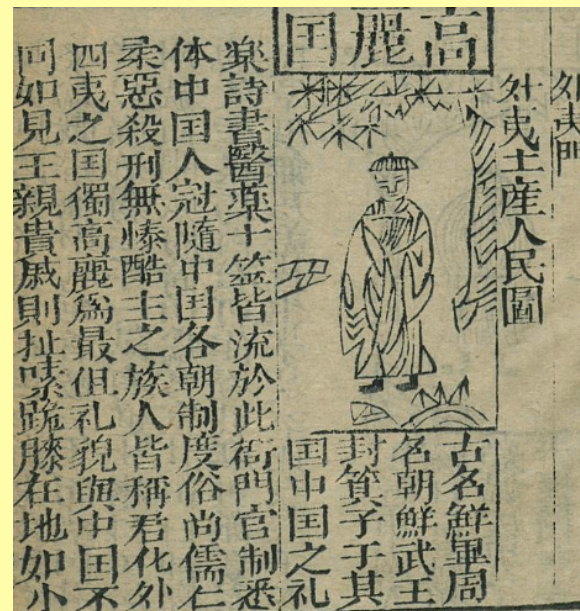 外夷門
外夷土産人民圖
高麗囯
古名鮮周
名朝鮮武王
封箕子于其
囯中囯之礼
楽詩書醫薬十筮皆流於此衙門官制悉
体中囯人冠隨中囯各朝制度俗尚儒仁
柔惡殺刑無慘酷主之族人皆稱君化外
四夷之囯獨高麗爲最但礼貌與中囯不
同如見王親貴戚則扯跪膝在地如小